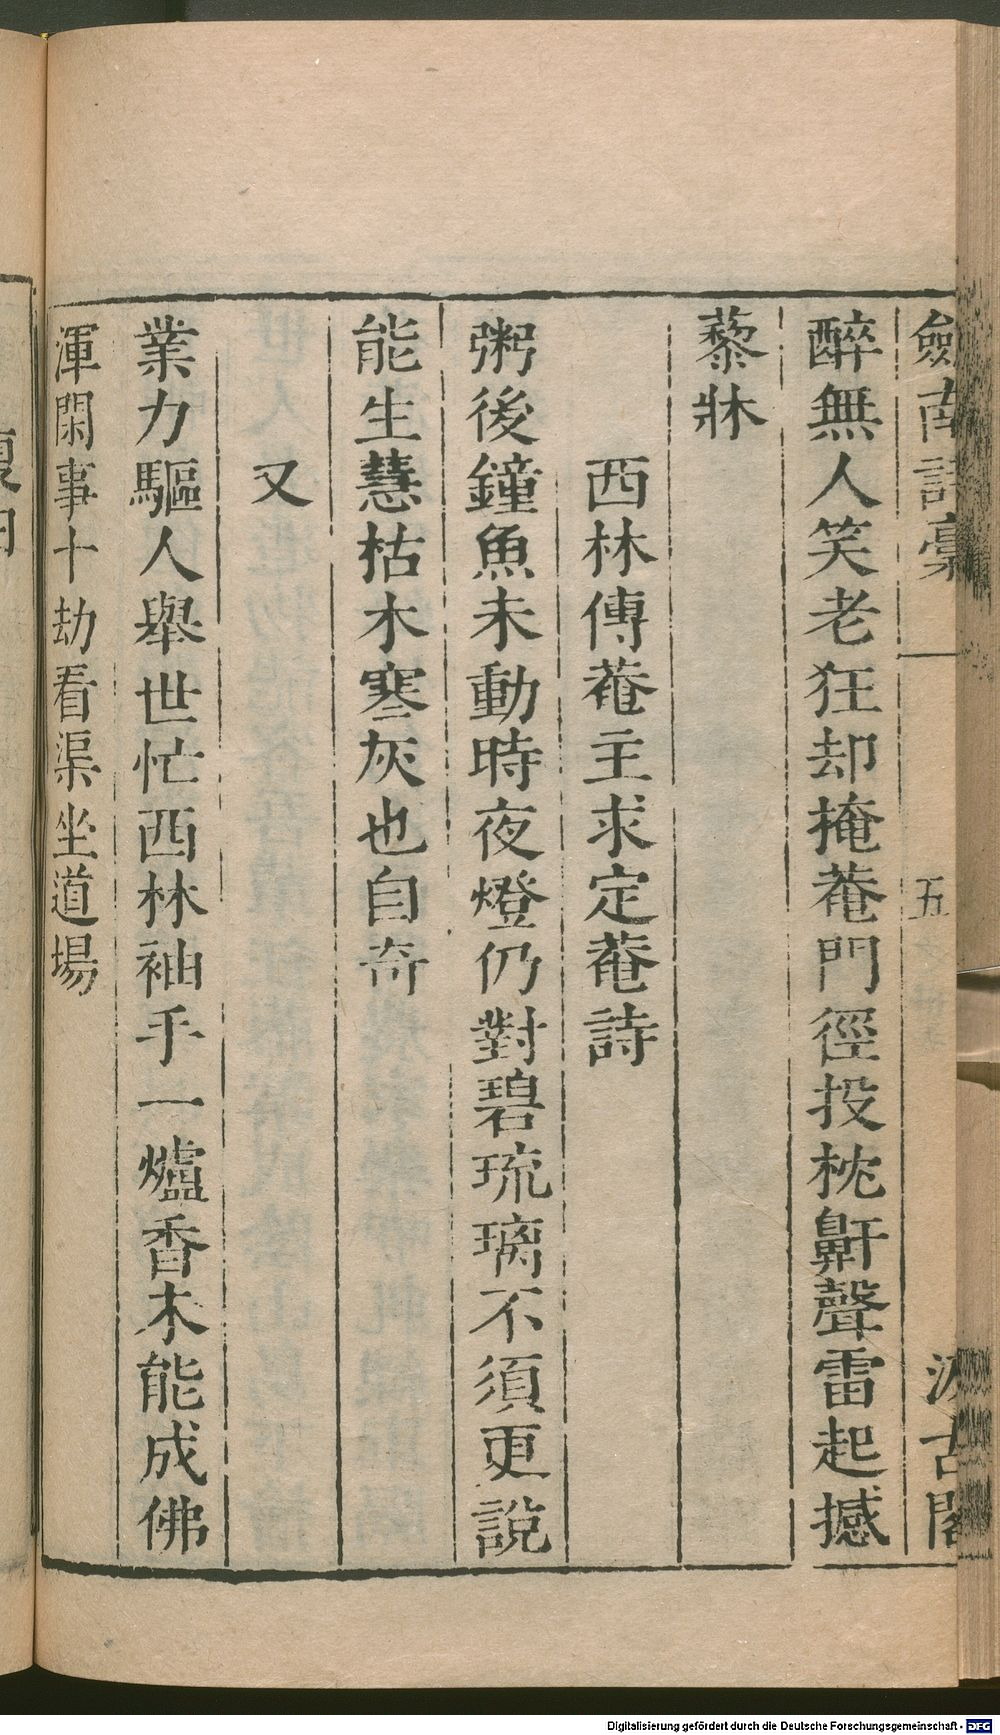 劍南詩稾 五 汲古閣
醉無人笑老狂却掩菴門徑投枕鼾聲雷起撼
藜牀
西林傳菴主求定菴詩
粥後鐘魚未動時夜燈仍對碧琉璃不須更說
能生慧枯木寒灰也自奇
又
業力驅人舉世忙西林袖手一爐香木能成佛
渾閑事十劫看渠坐道場
Digitalisierung gefördert durch die Deutsche Forschungsgemeinschaft - DFG